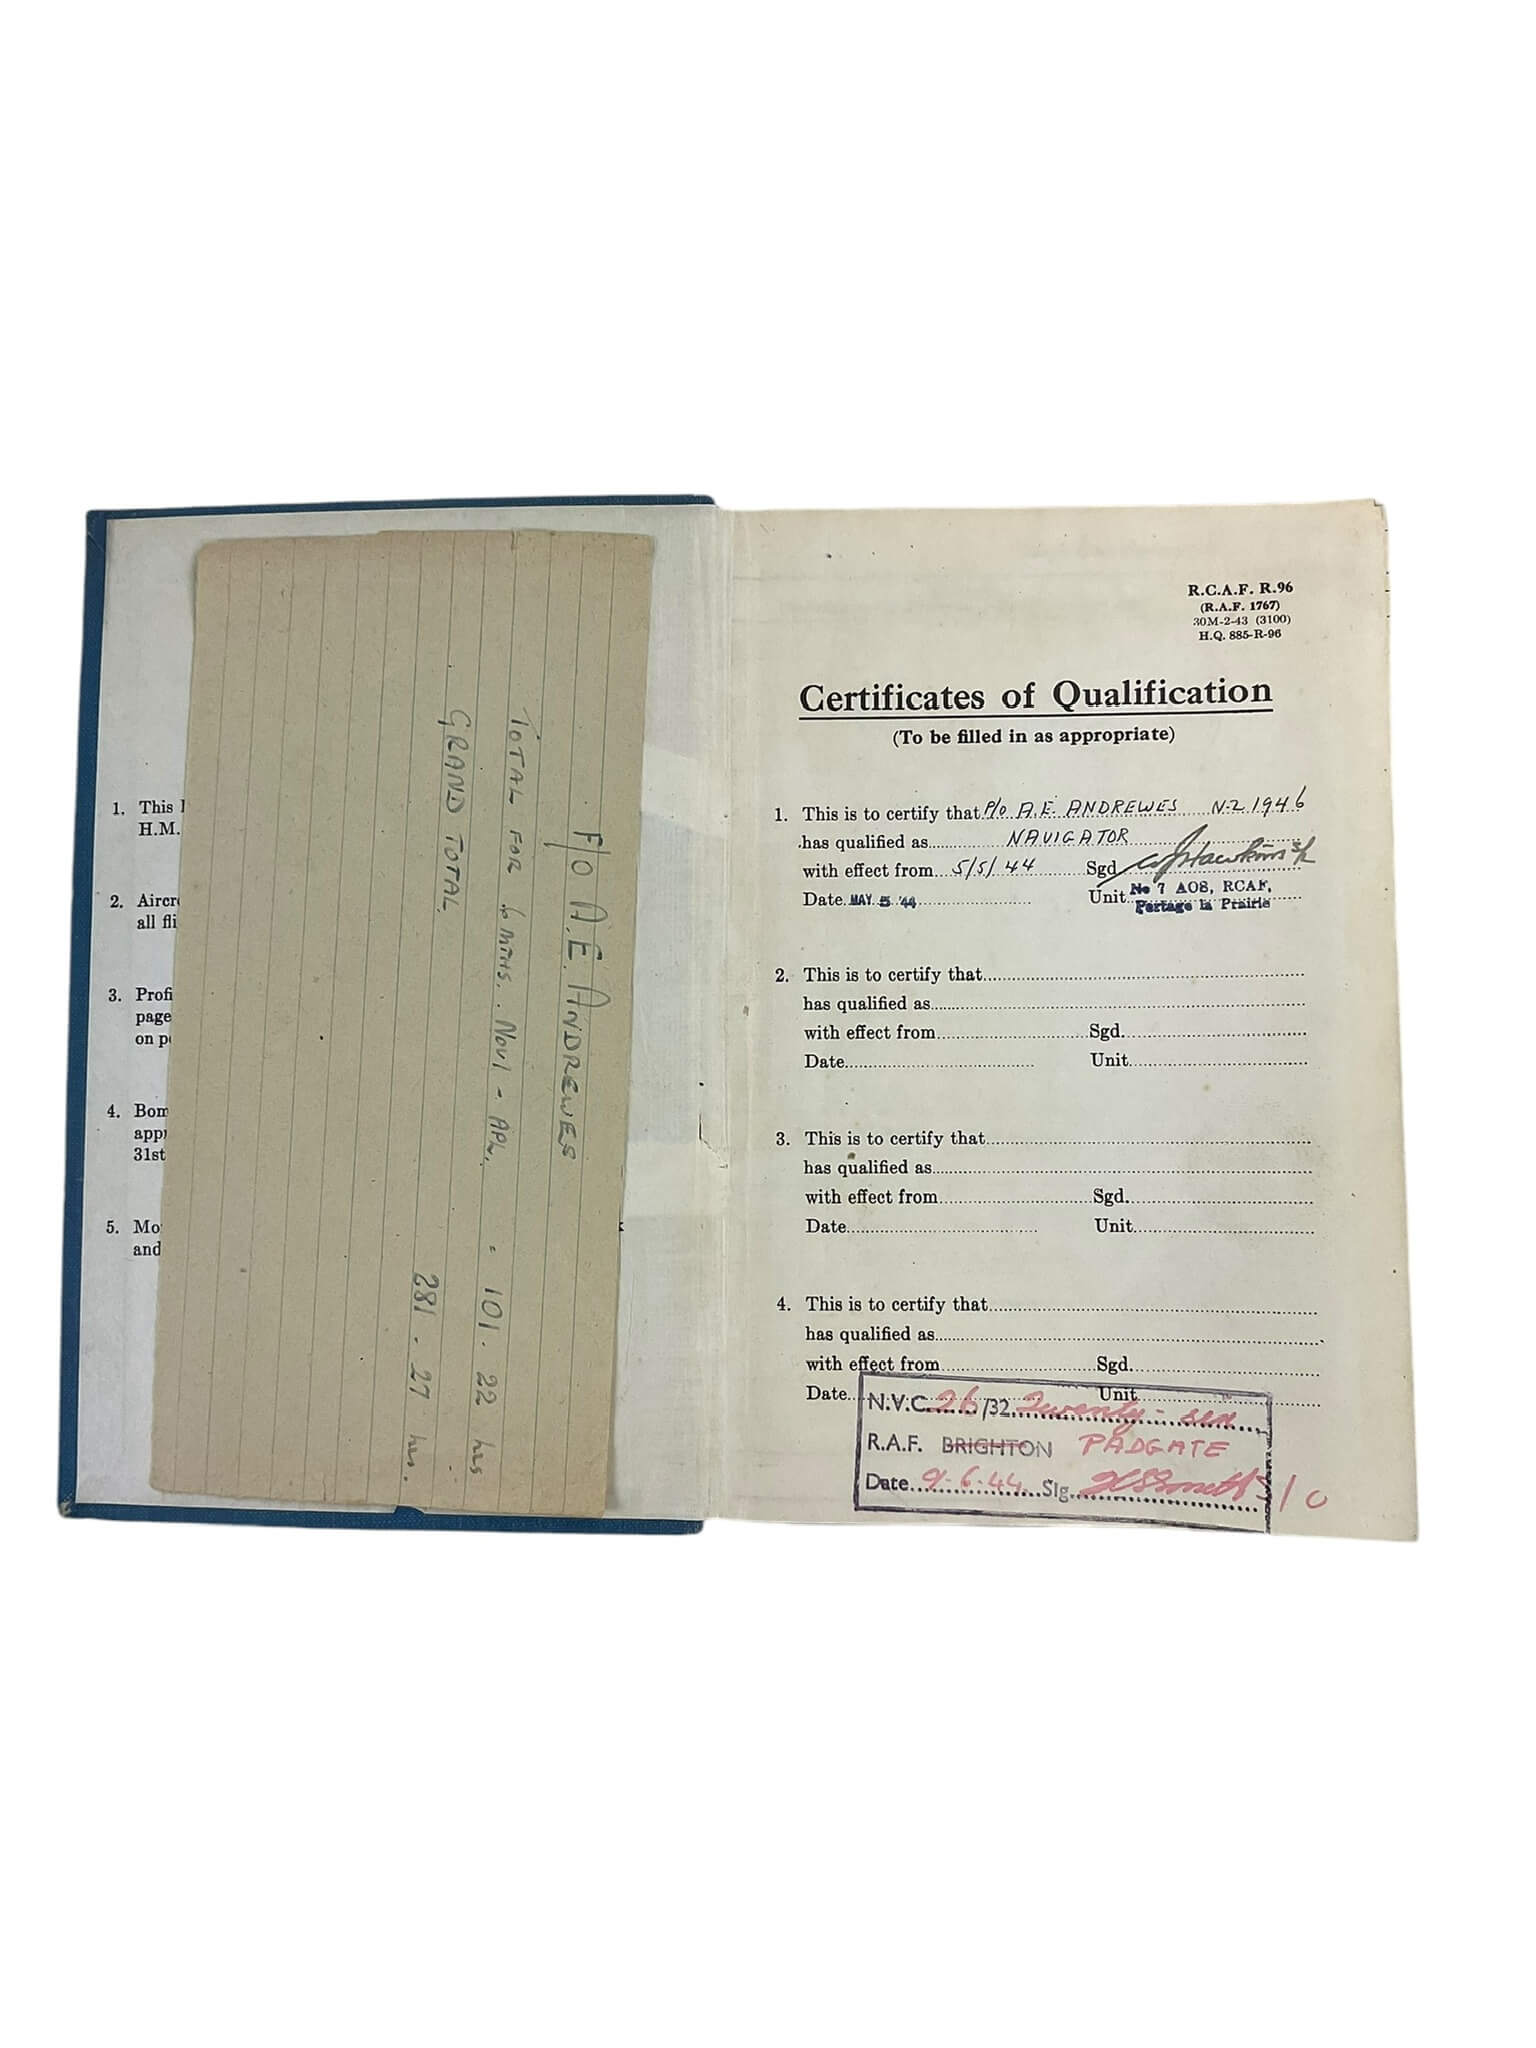 1. This
H.M.
2. Aircr
all fli
3. Profi
page
on p
4. Bom
app
31st
5. Mo
and
F/O A.E. ANDREWES
TOTAL FOR 6 MTHS. NOV 1 - APL. = 101 . 22 hrs
GRAND TOTAL. 281 . 27 hrs.
R.C.A.F. R.96
(R.A.F. 1767)
30M-2-43 (3100)
H.Q. 885-R-96
Certificates of Qualification
(To be filled in as appropriate)
1. This is to certify that P/O A.E. ANDREWES N.Z 1946
has qualified as NAVIGATOR
with effect from 5/5/44 Sgd. Hawkins S/L
Date MAY 5 '44 Unit No 7 AOS, RCAF,
Portage la Prairie
2. This is to certify that
has qualified as
with effect from Sgd.
Date Unit
3. This is to certify that
has qualified as
with effect from Sgd.
Date Unit
4. This is to certify that
has qualified as
with effect from Sgd.
Date Unit
N.V.C. 26/32 Twenty-six
R.A.F. BRIGHTON PADGATE
Date 9.6.44 Sig.